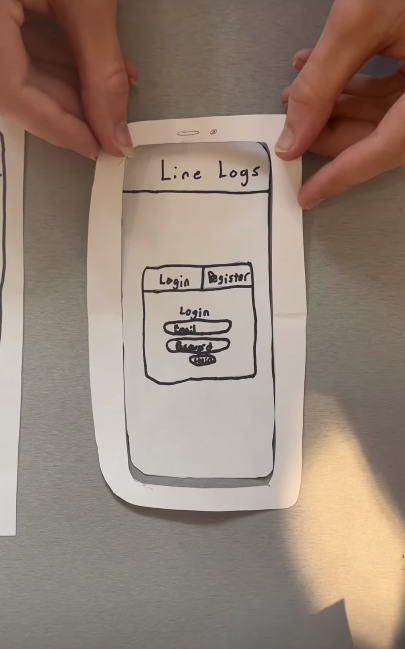 Line Logs
Login Register
Login
Email
Password